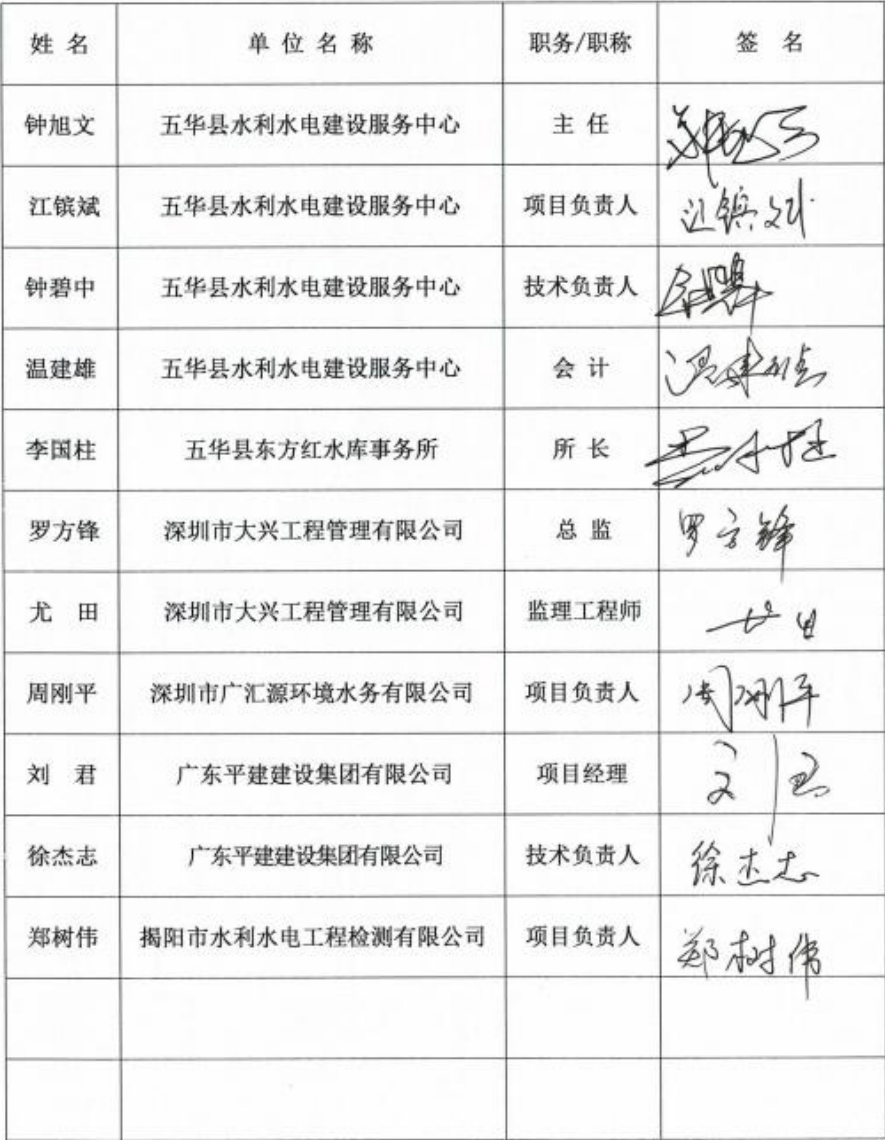 姓 名 单 位 名 称 职务/职称 签 名
钟旭文 五华县水利水电建设服务中心 主 任
江镔斌 五华县水利水电建设服务中心 项目负责人 江镔斌
钟碧中 五华县水利水电建设服务中心 技术负责人
温建雄 五华县水利水电建设服务中心 会 计 温建雄
李国柱 五华县东方红水库事务所 所 长
罗方锋 深圳市大兴工程管理有限公司 总 监 罗方锋
尤 田 深圳市大兴工程管理有限公司 监理工程师 尤田
周刚平 深圳市广汇源环境水务有限公司 项目负责人 周刚平
刘 君 广东平建建设集团有限公司 项目经理 刘君
徐杰志 广东平建建设集团有限公司 技术负责人 徐杰志
郑树伟 揭阳市水利水电工程检测有限公司 项目负责人 郑树伟